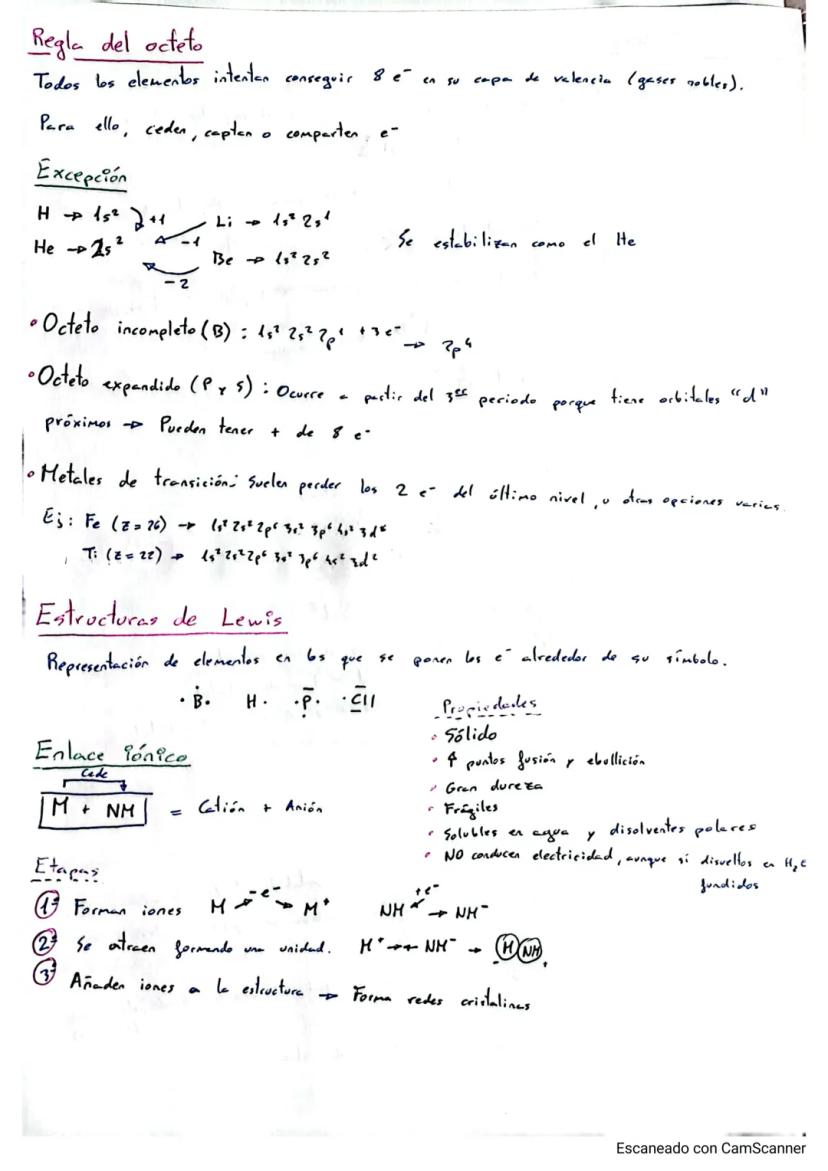 Regla del octeto
Todos los elementos intentan conseguir 8 e⁻ en su capa de valencia (gases nobles).
Para ello, ceden, captan o comparten e⁻
Excepción
H → 1s² +1
He → 2s² -1 -2
Li → 1s² 2s¹
Be → 1s² 2s²
Se estabilizan como el He
• Octeto incompleto (B): 1s² 2s² 2p¹ +3e⁻ → 2p⁴
• Octeto expandido (P y S): Ocurre a partir del 3er periodo porque tiene orbitales "d"
próximos → Pueden tener + de 8 e⁻
• Metales de transición: Suelen perder los 2 e⁻ del último nivel, u otras opciones varias.
Ej: Fe (Z=26) → 1s² 2s² 2p⁶ 3s² 3p⁶ 4s² 3d⁶
Ti (Z=22) → 1s² 2s² 2p⁶ 3s² 3p⁶ 4s² 3d²
Estructuras de Lewis
Representación de elementos en los que se ponen los e⁻ alrededor de su símbolo.
B H P Cl
Enlace iónico
Cede
M + NM = Catión + Anión
Propiedades
• Sólido
• ↑ puntos fusión y ebullición
• Gran dureza
• Frágiles
• Solubles en agua y disolventes polares
• NO conducen electricidad, aunque sí disueltos en H₂O
fundidos
Etapas
1ª Forman iones M -e⁻→ M⁺ NM +e⁻→ NM⁻
2ª Se atraen formando una unidad. M⁺ →← NM⁻ → M NM
3ª Añaden iones a la estructura → Forma redes cristalinas
Escaneado con CamScanner